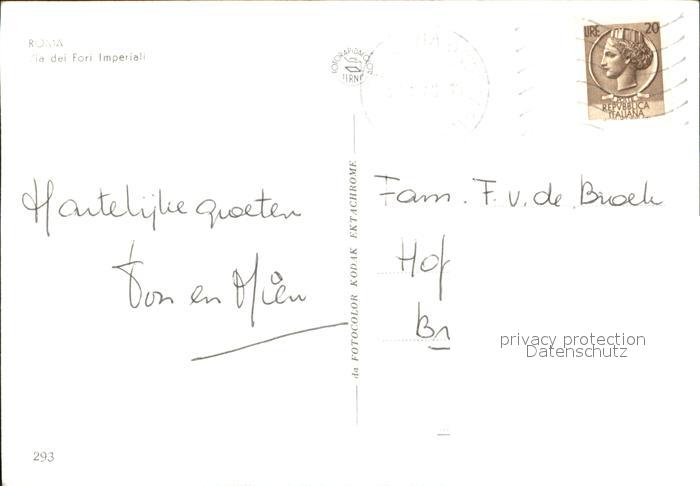 ROMA
Via dei Fori Imperiali
LIRE 20
POSTE
REPVBBLICA
ITALIANA
Hartelijke groeten
Ton en Mien
da FOTOCOLOR KODAK EKTACHROME
Fam. F. v. de Broek
Hof
Br
privacy protection
Datenschutz
293